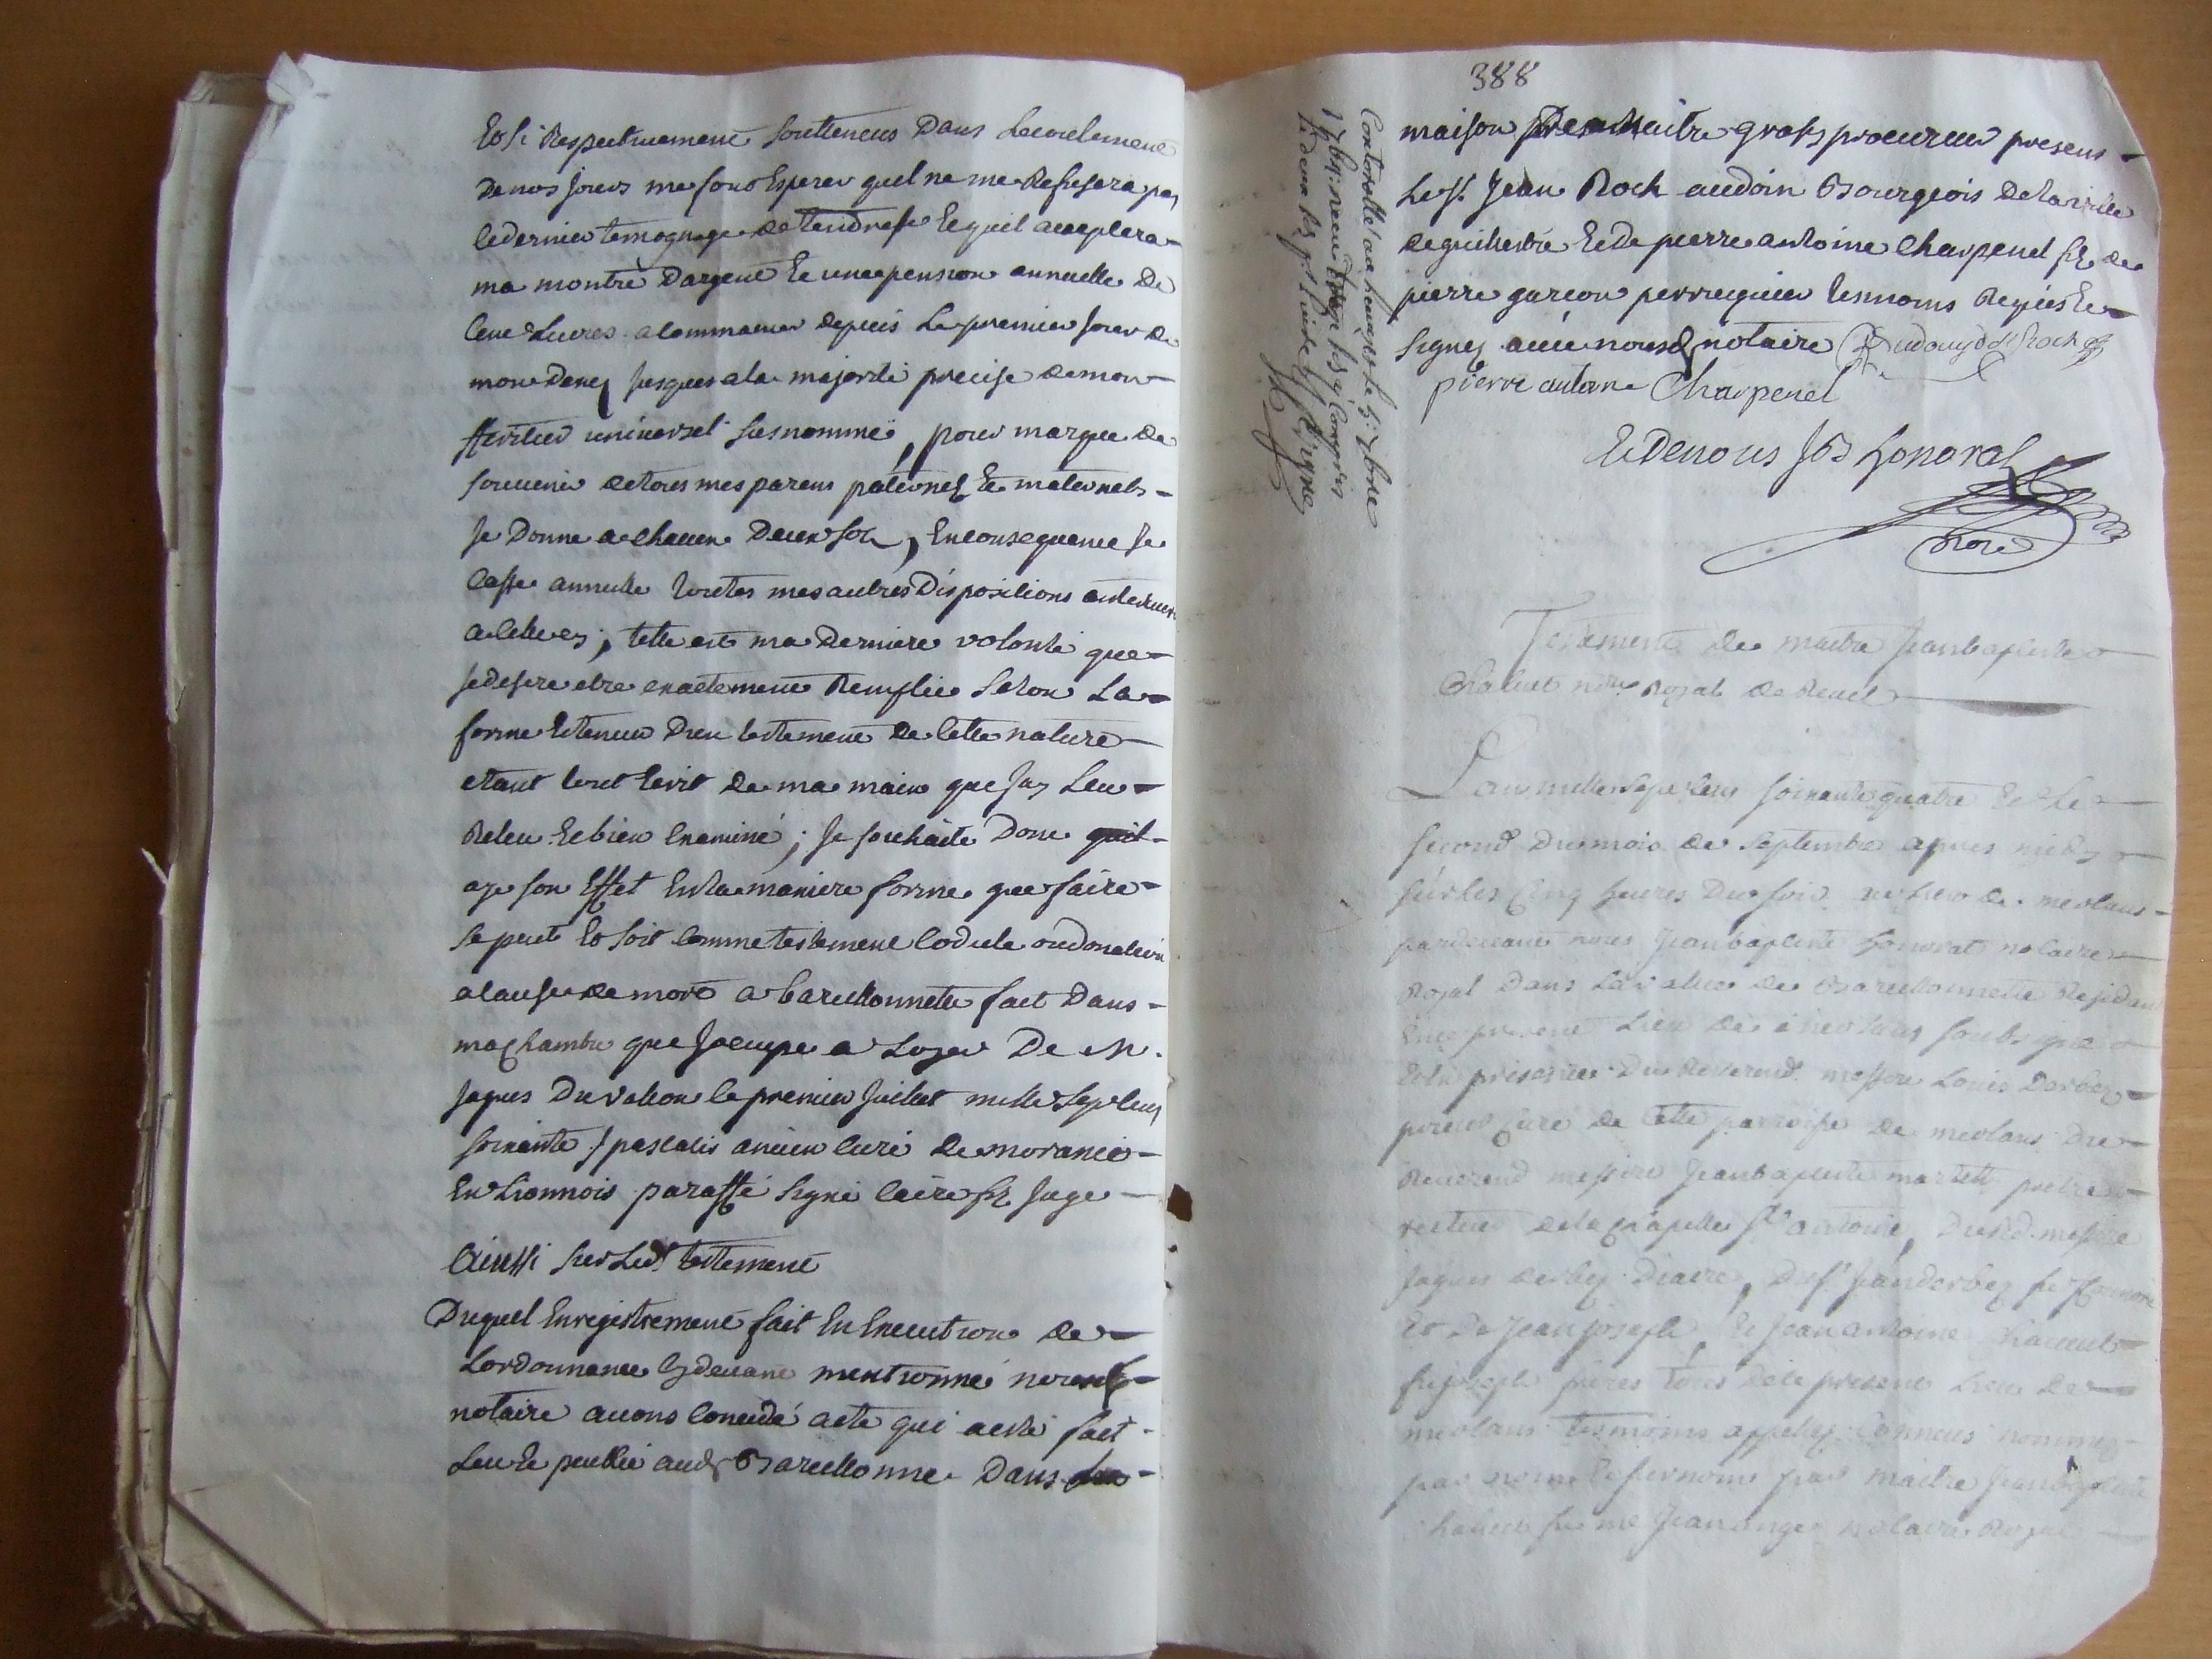 Et si Respectivement souttenus Dans Lecoulement
De nos jours me font Esperer quel ne me Refusera pas
le dernier temognage de tendresse Et quil acceptera
ma montre Dargent Et une pension annuelle De
Cent Livres a Commancer depuis Le premier Jour de
mon deces jusques a la majorite precise de mon
heritier universel susnommé, pour marque de
souvenir de tous mes parens paternels Et maternels
Je Donne a chacun Deux sols, En consequence Je
Casse annulle toutes mes autres Dispositions
a celle cy; telle est ma Derniere volonté que
je desire etre exactement Remplie selon La
forme Et teneur D'un testement de Cette nature
etant tout Ecrit de ma main que Jay Leu
Releu Et bien Examiné; Je souhaite Donc quil
aye son Effet En la maniere forme que faire
se peut Et soit Comme testement Codicile ou donation
a Cause de mort a barcellonnette fait Dans
ma chambre que Joccupe a Loyer De M.
Jaques Duvallon le premier Juillet mille sept cens
soixante / pascalis ancien curé de morancé
En Lionnois paraffé signé Caire Juge
Ainssi sur Led. testement
Duquel Enregistrement fait En Execution de
Lordonnance Cy devant mentionné nousd.
notaire avons Concedé acte qui a esté fait
Leu Et publié aud. Barcellonne Dans
388
maison De Maitre grassy procureur presens
Le sr. Jean Roch audoin Bourgeois De la ville
de guillestre Et de pierre antoine Charpenel fils de
pierre garcon perruquier tesmoins Requis Et
signez avec nousd. notaire
pierre antoine Charpenel
Et De nous Honorat
nore
Controllé au Lauzet le 7bre
Testement de maitre Jean baptiste
Chaluet nre. Royal de Revel
Lan mille sept Cens soixante quatre Et Le
second Du mois de Septembre apres midy
sur les Cinq heures Du soir au Lieu de meolans
pardevant nous Jean baptiste Honorat notaire
Royal Dans La valée de Barcellonnette Residant
En ce present Lieu de meolans soubsigné
Et En presence Du Reverend messire Louis Derbez
prieur Curé de Cette parroisse de meolans Du
Reverend messire Jean baptiste martell pretre
recteur de la chapelle St. antoine, Du Rd. messire
Jaques derbez Diacre, Du sr. Jean derbez fu Honoré
Et De Jean Joseph, Et Jean antoine
fu joseph freres tous de ce present Lieu de
meolans tesmoins appellez Connus nommez
par nom Et surnoms par maitre Jean baptiste
Chaluet fu me Jean ange notaire Royal